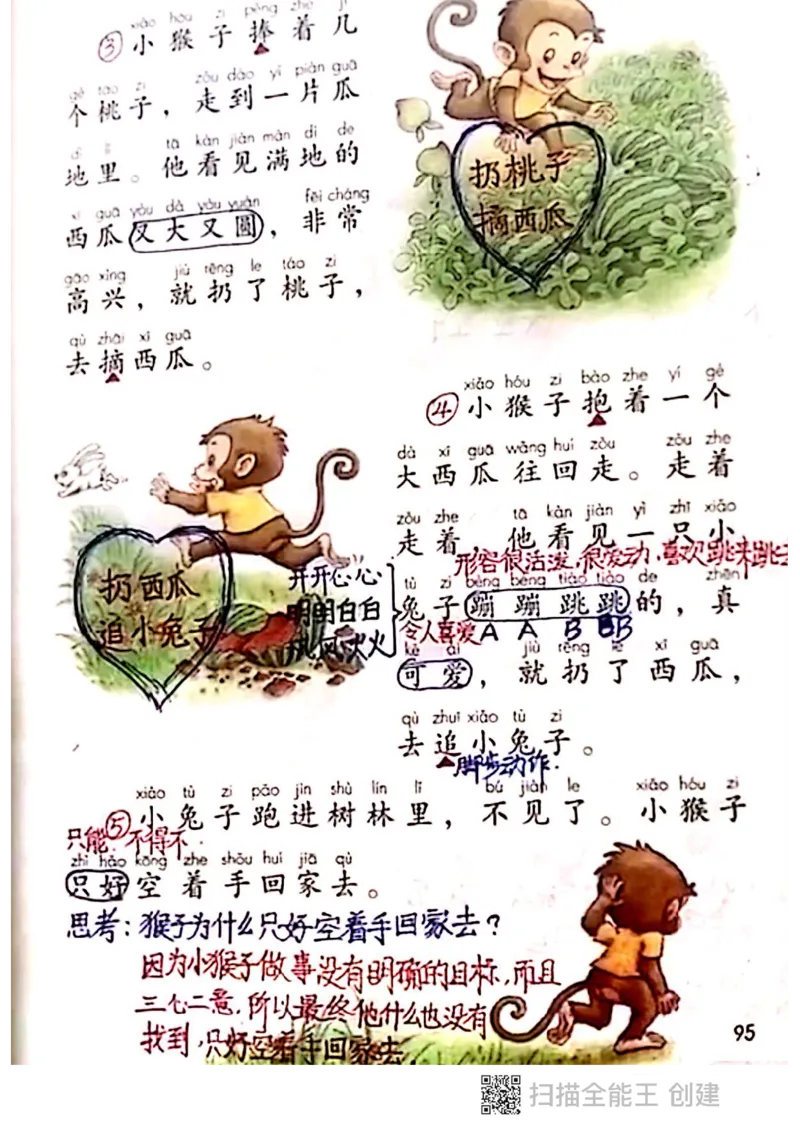 xiǎo hóu zi pěng zhe jǐ
③小猴子捧着几
gè táo zi zǒu dào yí piàn guā
个桃子，走到一片瓜
dì lǐ tā kàn jiàn mǎn dì de
地里。他看见满地的
xī guā yòu dà yòu yuán fēi cháng
西瓜又大又圆，非常
gāo xìng jiù rēng le táo zi
高兴，就扔了桃子，
qù zhāi xī guā
去摘西瓜。
扔桃子
摘西瓜
xiǎo hóu zi bào zhe yí gè
④小猴子抱着一个
dà xī guā wǎng huí zǒu zǒu zhe
大西瓜往回走。走着
zǒu zhe tā kàn jiàn yì zhī xiǎo
走着，他看见一只小
形容很活泼，很爱动，喜欢跳来跳去
tù zi bèng bèng tiào tiào de zhēn
兔子蹦蹦跳跳的，真
令人喜爱 A A B B
kě ài jiù rēng le xī guā
可爱，就扔了西瓜，
qù zhuī xiǎo tù zi
去追小兔子。
脚步动作
扔西瓜
追小兔子
开开心心
明明白白
风风火火
xiǎo tù zi pǎo jìn shù lín lǐ bú jiàn le xiǎo hóu zi
⑤小兔子跑进树林里，不见了。小猴子
只能 不得不
zhǐ hǎo kōng zhe shǒu huí jiā qù
只好空着手回家去。
思考：猴子为什么只好空着手回家去？
因为小猴子做事没有明确的目标，而且
三心二意，所以最终他什么也没有
找到，只好空着手回家去
95
扫描全能王 创建